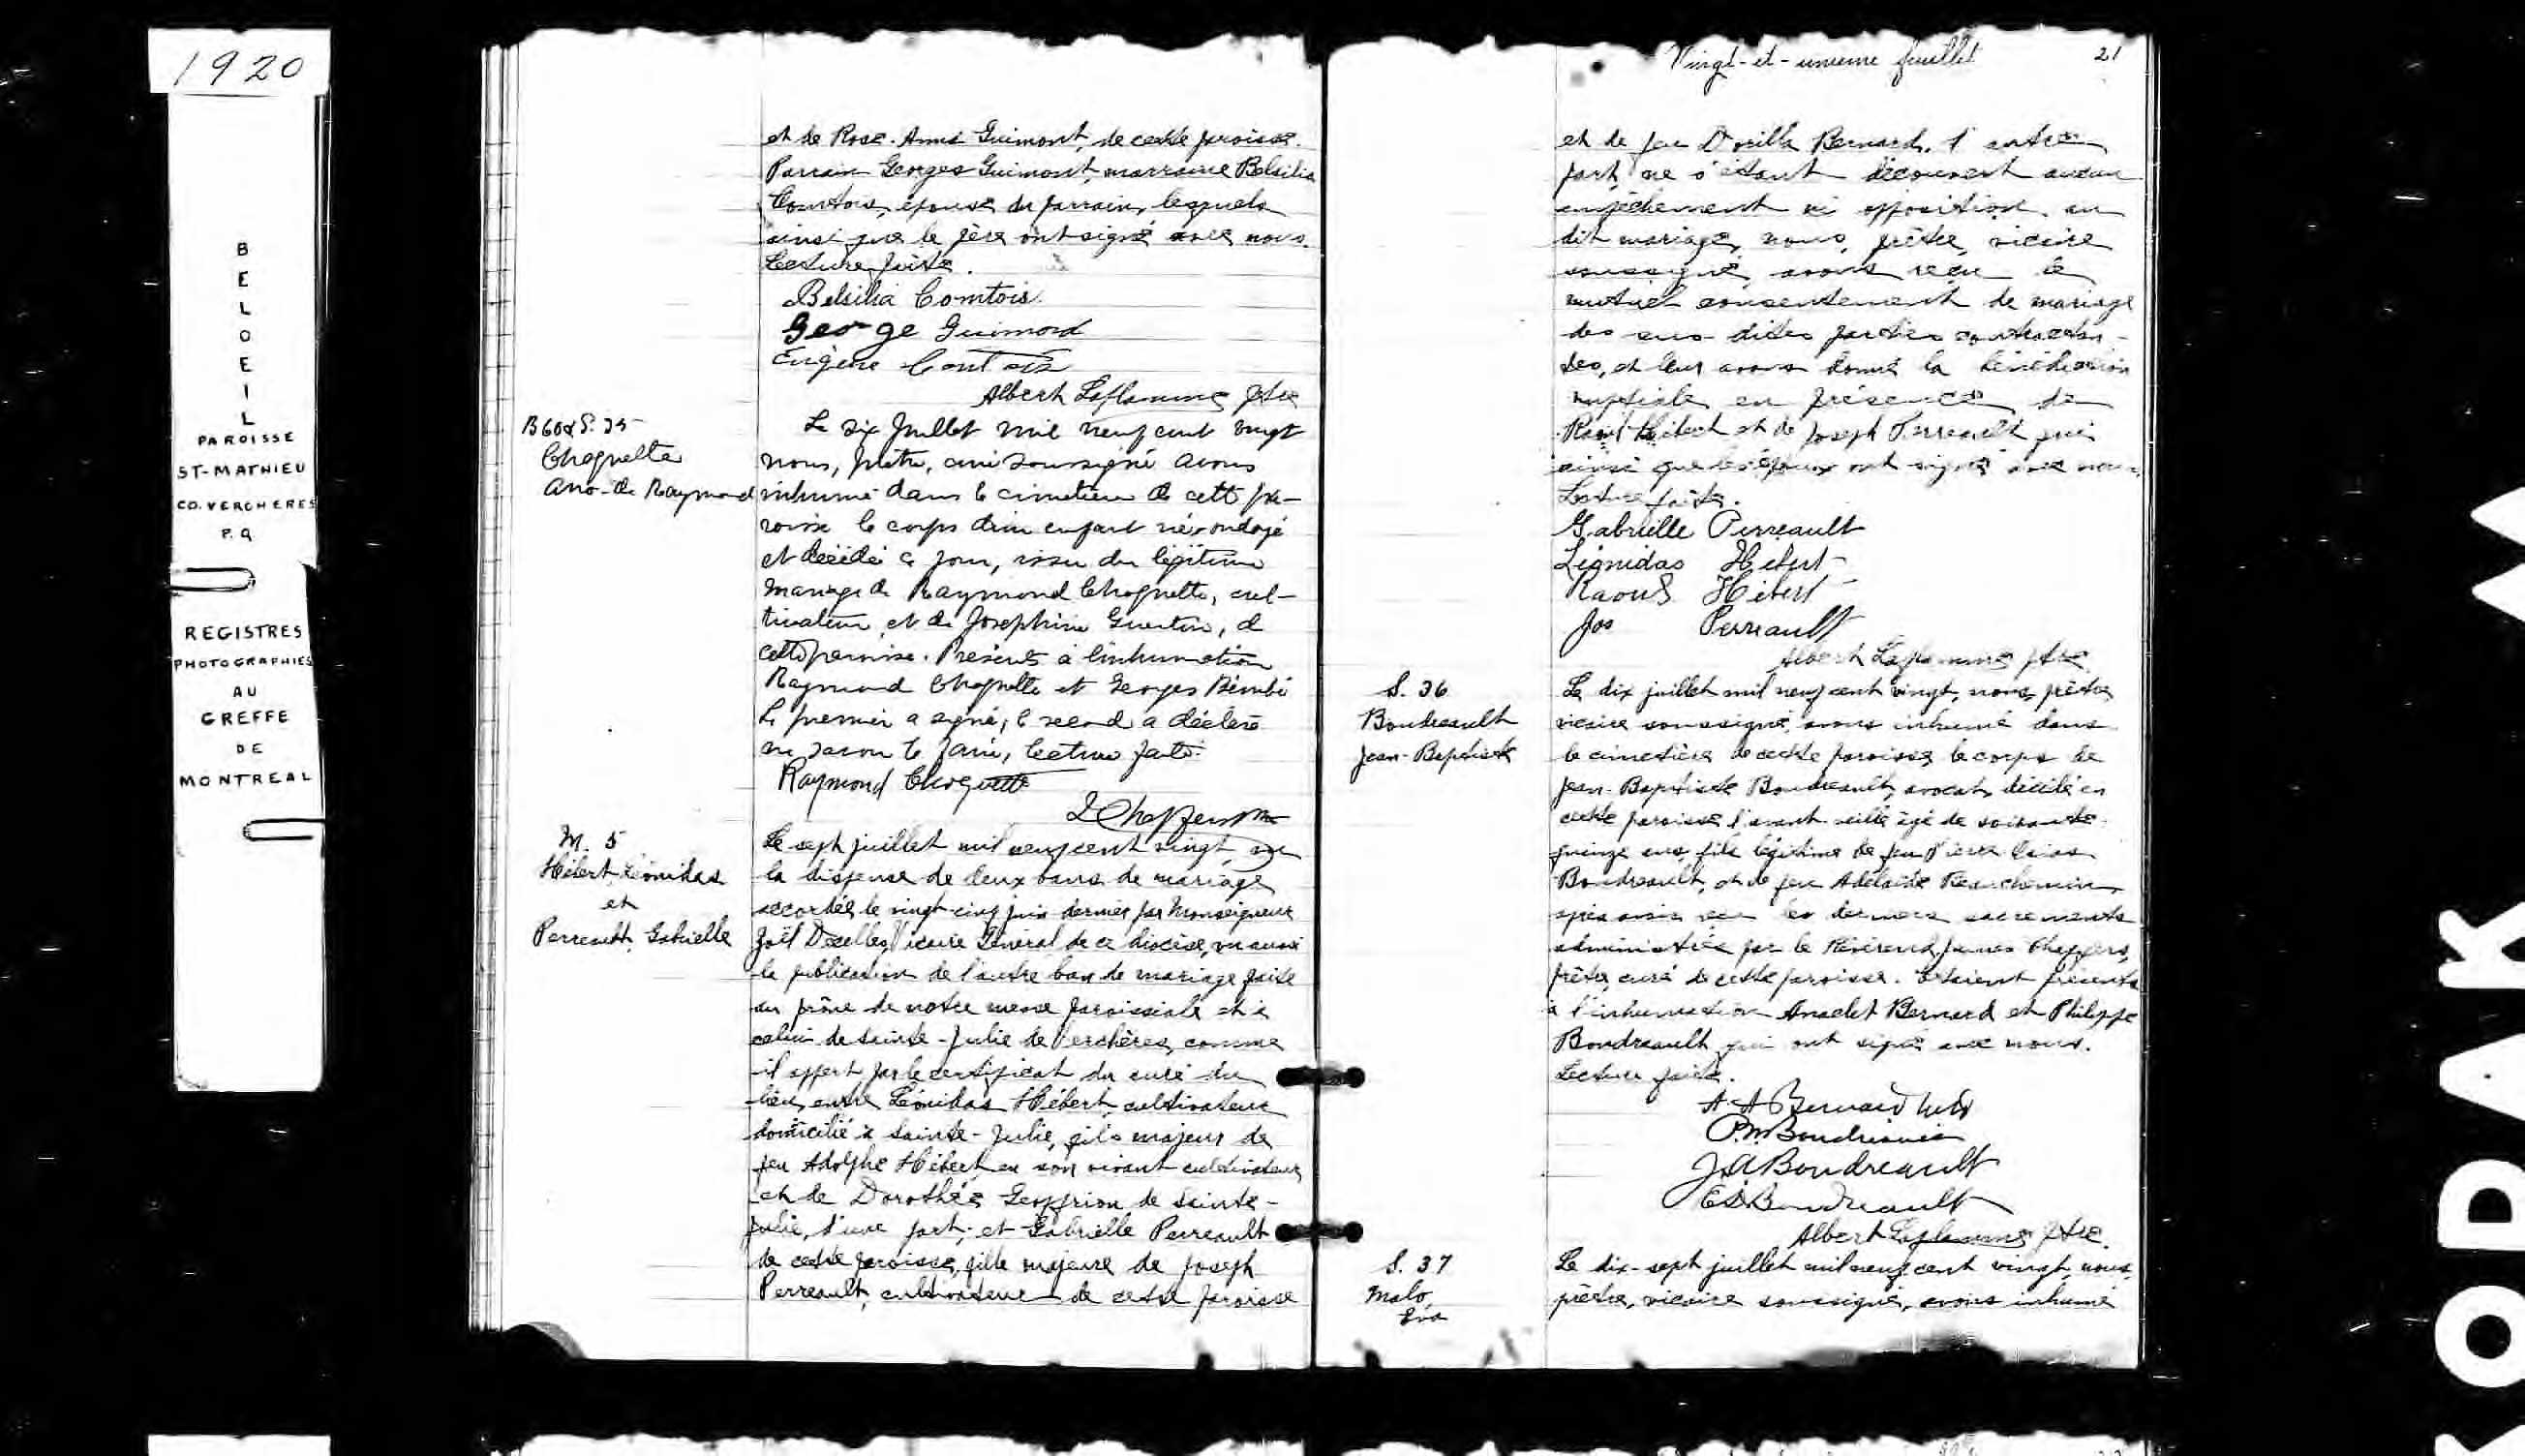 1920
BELOEIL
PAROISSE
ST-MATHIEU
CO. VERCHERES
P.Q.
REGISTRES
PHOTOGRAPHIES
AU
GREFFE
DE
MONTREAL
et de Rose-Anna Guimont, de cette paroisse.
Parrain Georges Guimont, marraine Belsilia
Comtois, épouse du parrain, lesquels
ainsi que le père ont signé avec nous.
Lecture faite.
Belsilia Comtois
George Guimond
Eugène Comtois
Albert Laflamme ptre
B60 & S. 35
Choquette
Ano. de Raymond
Le six Juillet mil neuf cent vingt
nous, prêtre, curé soussigné avons
inhumé dans le cimetière de cette pa-
roisse le corps d'un enfant né, ondoyé
et décédé ce jour, issu du légitime
mariage de Raymond Choquette, cul-
tivateur, et de Josephine Guertin, de
cette paroisse. Présents à l'inhumation
Raymond Choquette et Georges
Le premier a signé, le second a déclaré
ne savoir le faire, lecture faite.
Raymond Choquette
M. 5
Hébert, Léonidas
et
Perreault, Gabrielle
Le sept juillet mil neuf cent vingt, vu
la dispense de deux bans de mariage
accordée le vingt-cinq juin dernier par Monseigneur
Joël Decelles, Vicaire Général de ce diocèse, vu aussi
la publication de l'autre ban de mariage faite
au prône de notre messe paroissiale et à
celui de Sainte-Julie de Verchères, comme
il appert par le certificat du curé du
lieu, entre Léonidas Hébert, cultivateur
domicilié à Sainte-Julie, fils majeur de
feu Adolphe Hébert, en son vivant cultivateur
et de Dorothée Geoffrion de Sainte-
Julie, d'une part; et Gabrielle Perreault
de cette paroisse, fille majeure de Joseph
Perreault, cultivateur de cette paroisse
Vingt-et-unième feuillet 21
et de feu Dorilla Bernard, d'autre
part, ne s'étant découvert aucun
empêchement ni opposition au
dit mariage, nous, prêtre, vicaire
soussigné, avons reçu le
mutuel consentement de mariage
des sus-dites parties contractan-
tes, et leur avons donné la bénédiction
nuptiale en présence de
Raoul Hébert et de Joseph Perreault qui
ainsi que les époux ont signé avec nous.
Lecture faite.
Gabrielle Perreault
Léonidas Hébert
Raoul Hébert
Jos Perreault
Albert Laflamme ptre
S. 36
Boudreault
Jean-Baptiste
Le dix juillet mil neuf cent vingt, nous, prêtre
vicaire soussigné, avons inhumé dans
le cimetière de cette paroisse, le corps de
Jean-Baptiste Boudreault, avocat, décédé en
cette paroisse l'avant-veille âgé de soixante-
quinze ans, fils légitime de feu Pierre
Boudreault, et de feu Adélaïde Beauchemin,
après avoir reçu les derniers sacrements
administrés par le Révérend James Chaffers,
prêtre, curé de cette paroisse. Etaient présents
à l'inhumation Anaclet Bernard et Philippe
Boudreault qui ont signé avec nous.
Lecture faite.
A. A. Bernard
J.A. Boudreault
Boudreault
Albert Laflamme ptre.
S. 37
Malo,
Eva
Le dix-sept juillet mil neuf cent vingt, nous,
prêtre, vicaire soussigné, avons inhumé
KODAK